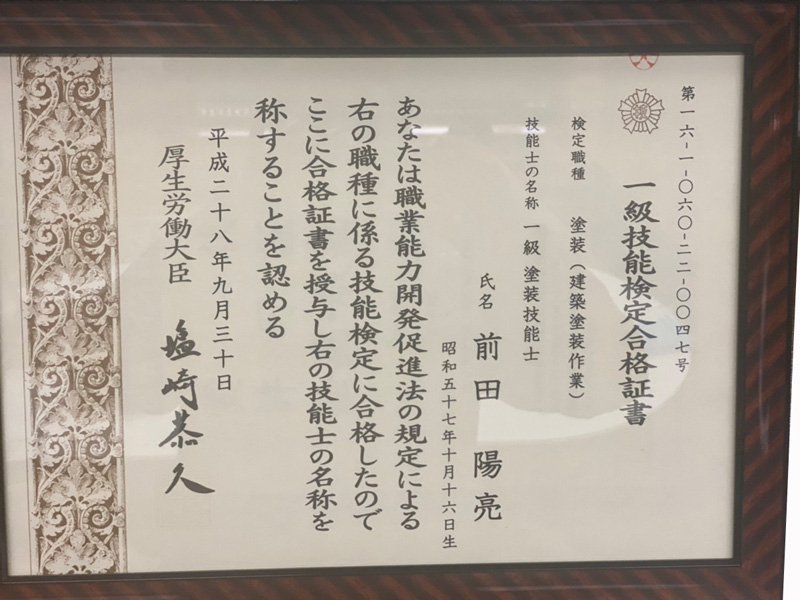 第一六-一-〇六〇-二二-〇〇四七号
一級技能検定合格証書
検定職種 塗装(建築塗装作業)
技能士の名称 一級 塗装技能士
氏名 前田 陽亮
昭和五十七年十月十六日生
あなたは職業能力開発促進法の規定による
右の職種に係る技能検定に合格したので
ここに合格証書を授与し右の技能士の名称を
称することを認める
平成二十八年九月三十日
厚生労働大臣 塩崎恭久